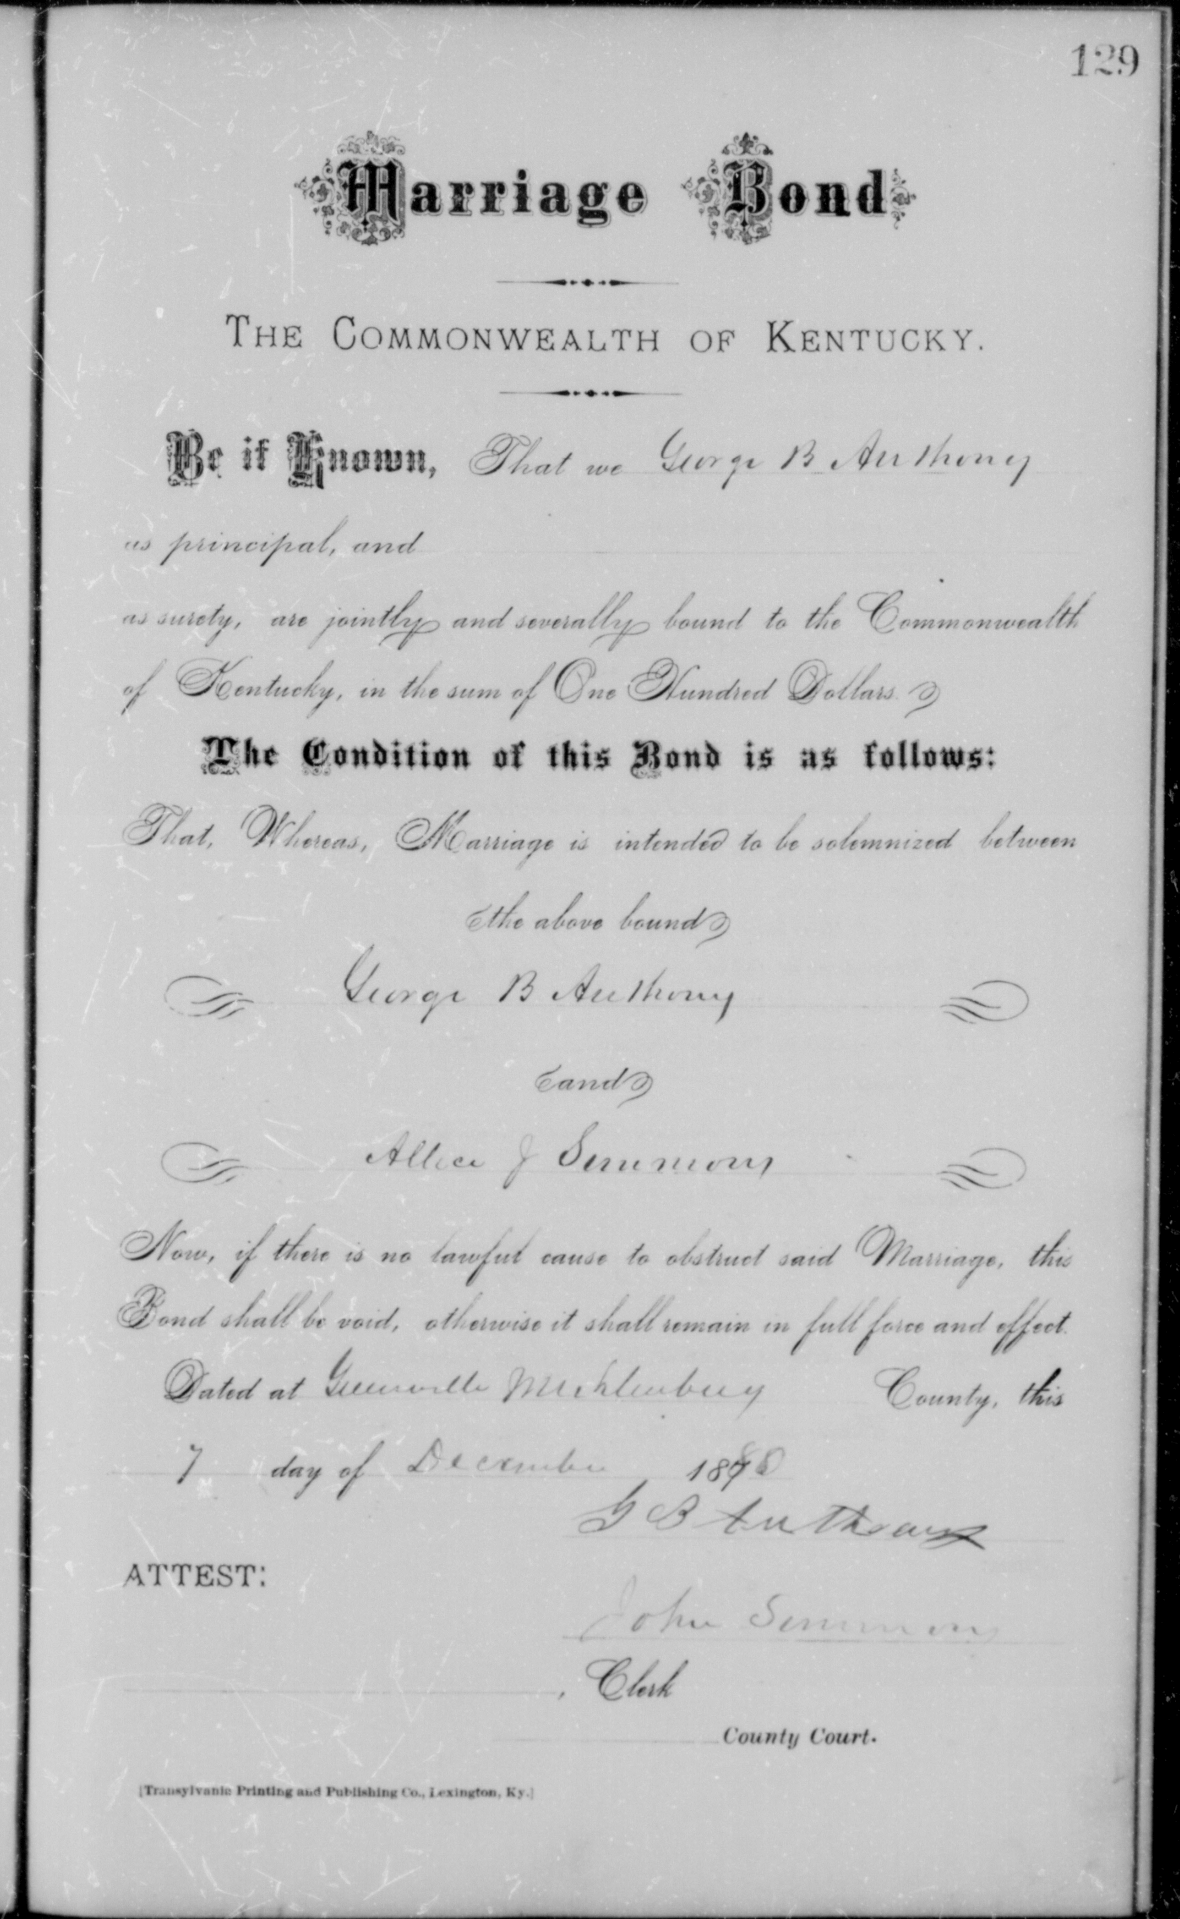 129
Marriage Bond
THE COMMONWEALTH OF KENTUCKY.
Be it Known, That we George B Anthony
as principal, and
as surety, are jointly and severally bound to the Commonwealth
of Kentucky, in the sum of One Hundred Dollars.
The Condition of this Bond is as follows:
That, Whereas, Marriage is intended to be solemnized between
the above bound
George B Anthony
and
Allice J Simmons
Now, if there is no lawful cause to obstruct said Marriage, this
Bond shall be void, otherwise it shall remain in full force and effect.
Dated at Greenville Muhlenburg County, this
7 day of December 1880
G B Anthony
ATTEST:
John Simmons
, Clerk
County Court.
[Transylvania Printing and Publishing Co., Lexington, Ky.]